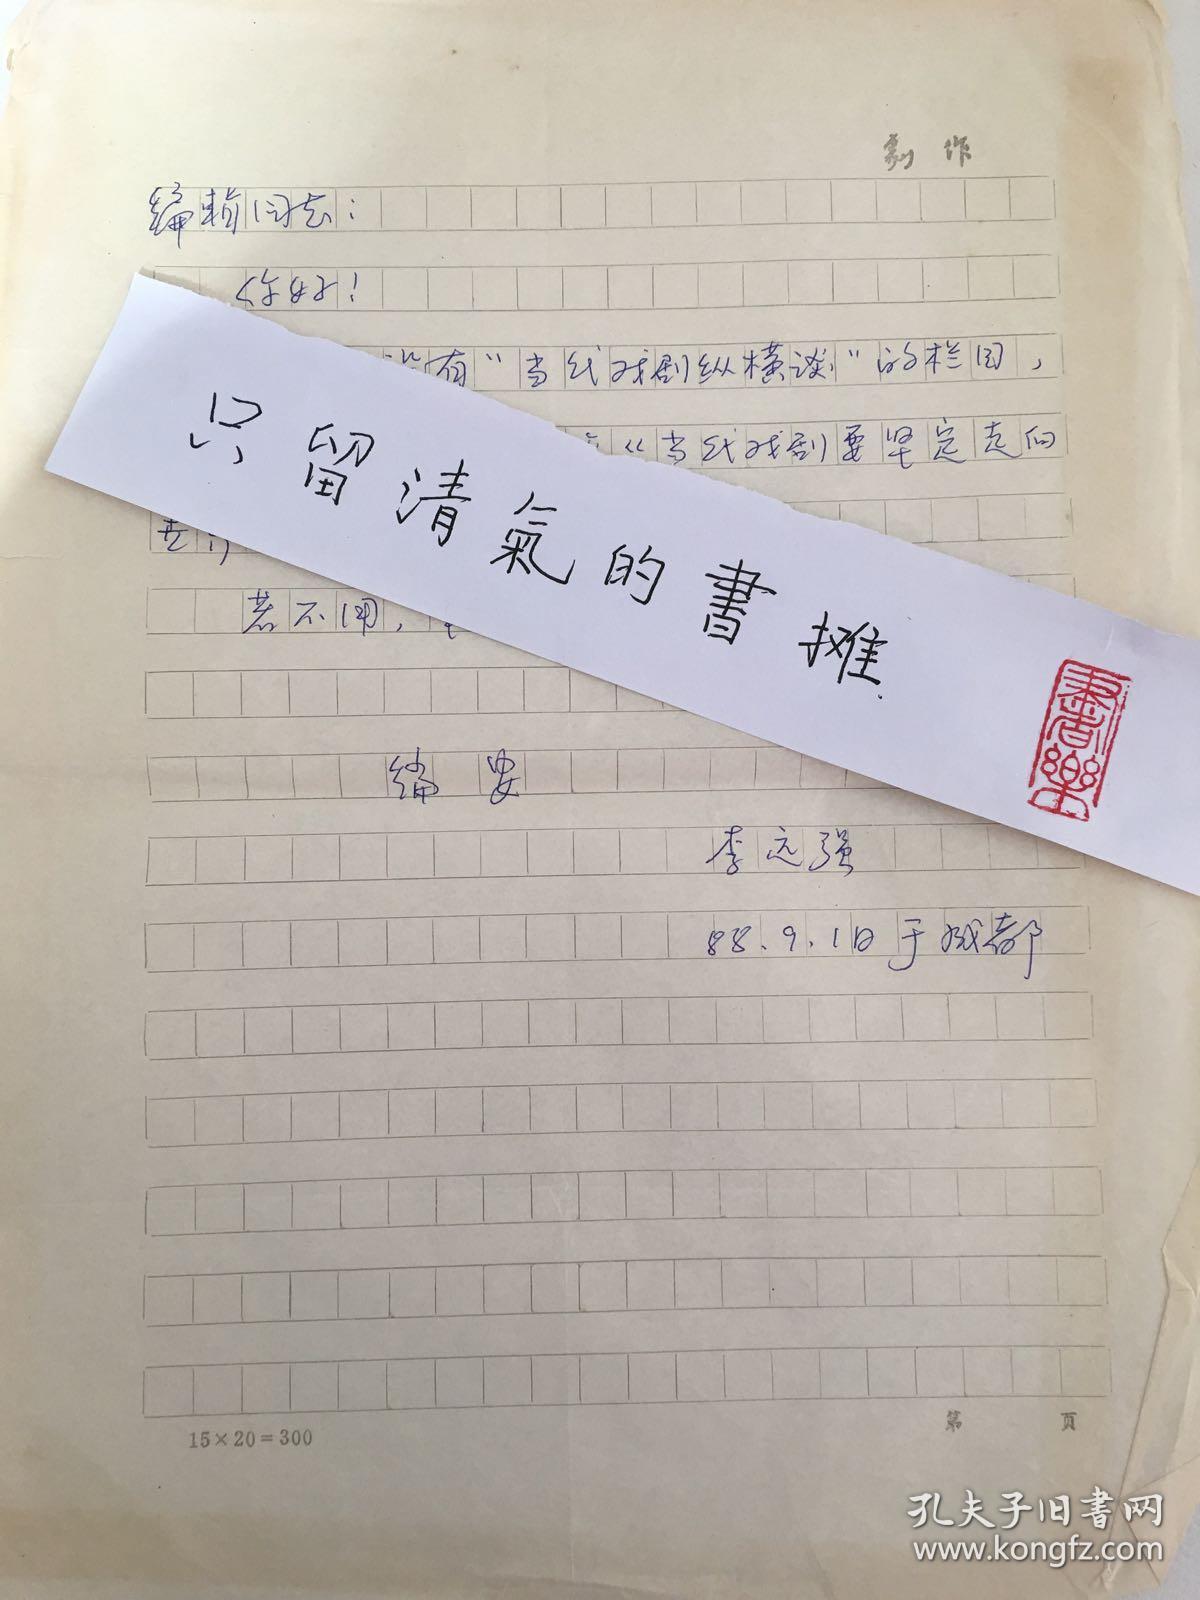 剧作
编辑同志：
你好！
设有“当代戏剧纵横谈”的栏目，
《当代戏剧要坚定走向
若不用，
编安
李远强
88.9.1日于成都
只留清氣的書攤
15×20=300
第 页
孔夫子旧书网
www.kongfz.com